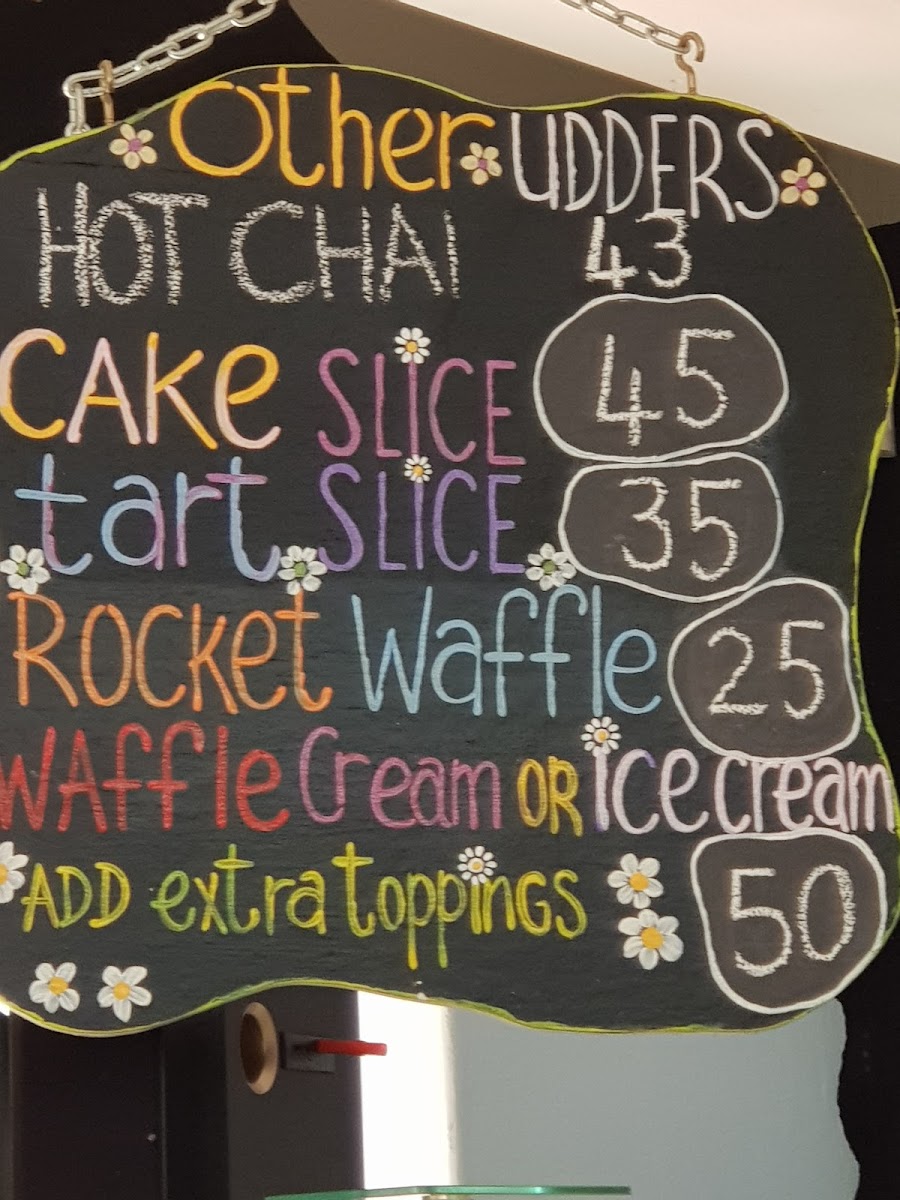 other UDDERS
HOT CHAI 43
CAke SLICE 45
tart SLICE 35
ROCKet Waffle 25
WAffle Cream OR ice cream
ADD extra toppings 50